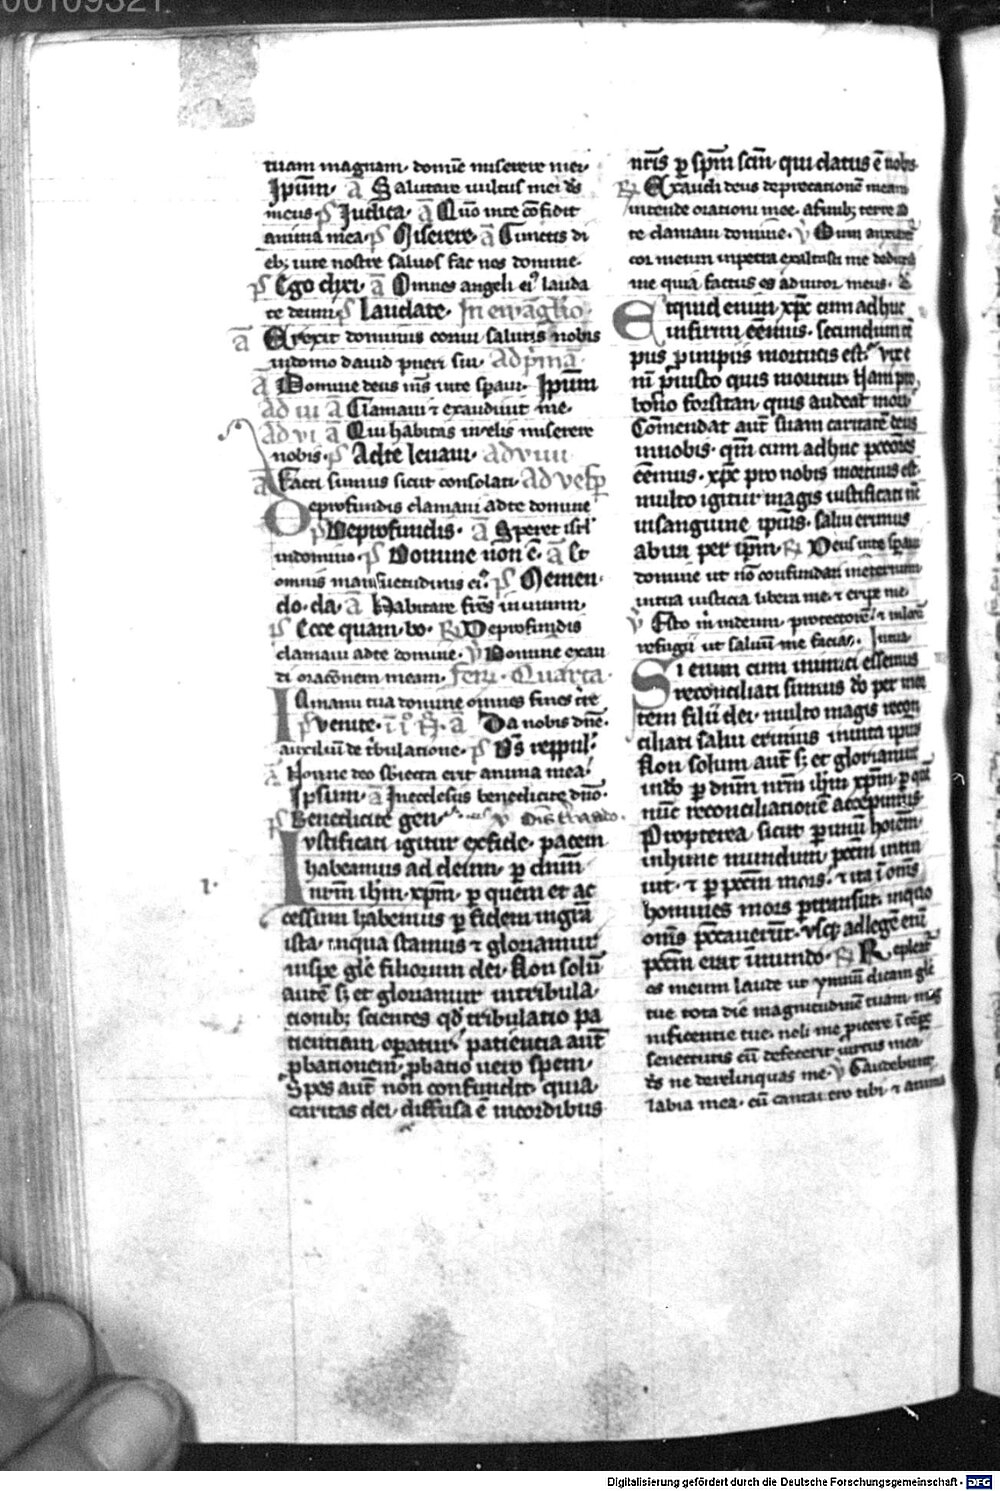 00109321
tuam magnam· domīe miserere mei·
Ipsum· ā Salutare uultus mei ds̄
meus· ps̄ Iudica· ā Quō in te cōfidit
anima mea· ps̄ Miserere· ā Cunctis di
eb; uite nostre saluos fac nos domine·
ps̄ Ego dixi· ā Omnes angeli ei⁹ lauda
te deum· ps̄ Laudate· In ewāglio
ā Erexit dominus cornu salutis nobis
in domo dauid pueri sui· Ad p̄mā
ā Domine deus m̄s in te spaui· Ipsum
ad iii ā Clamaui ⁊ exaudiuit me·
Ad vi ā Qui habitas in celis miserere
nobis· ps̄ Ad te leuaui· ad viiii
ā Facti sumus sicut consolati· Ad vesp̄
De profundis clamaui ad te domine
ps̄ De profundis· ā Speret isrl'
in domino· ps̄ Domine non ē· ā Et
omnis mansuetudinis ei⁹· ps̄ Memen·
do· da· ā Habitare frēs in unum·
ps̄ Ecce quam· bo· R̄ De profundis
clamaui ad te domine· v̄ Domine exau
di orac̄onem meam· feria Quarta·
In manu tua domine omnes fines t̄re
ps̄ venite· ā Da nobis dn̄e·
auxiliū de t̄bulatione· ps̄ D̄s reppul'·
ā Nonne deo sb̄iecta erit anima mea·
Ipsum· ā In ecclesiis benedicite dn̄o·
ps̄ Benedicite gen
Iustificati igitur ex fide· pacem
habeamus ad deum· p̄ dn̄m
1·
nr̄m ihm̄· xpm̄· p̄ quem et ac
cessum habemus p̄ fidem in gr̄a
ista· in qua stamus ⁊ gloriamur
in spe gl̄e filiorum dei· Non solū
autē s; et gloriamur in tribula·
tionib; scientes qd̄ tribulatio pa
tientiam opatur· patiencia aut̄
p̄bationem· p̄batio uero spem·
Spes aut̄ nōn confundit· quia·
caritas dei· diffusa ē in cordibus
nr̄is p̄ sp̄m scm̄· qui datus ē nobis
R̄ Exaudi deus deprecationē meam
intende orationi mee· a finib; terre ad
te clamaui domine· v̄ Dum anxiaret
cor meum in petra exaltasti me deduxi
me quia factus es adiutor meus·
Et quid enim· xpc̄ cum adhuc
infirmi eēmus· secundum t̄
pus p̄ impiis mortuus est· vix e
ni p̄ iusto quis moritur· Nam pro
bono forsitan· quis audeat mori·
Com̄endat aut̄ suam caritatē deus
in nobis· qm̄ cum adhuc pecc̄ores
eēmus· xpc̄ pro nobis mortuus est·
multo igitur magis iustificati nc̄
in sanguine ipius· salui erimus
ab ira per ip̄m· R̄ Deus in te spaui
domine ut nō confundar in eternum·
in tua iusticia libera me· ⁊ eripe me·
v̄ Esto m̄ in deum· protectorē· ⁊ in locū
refugii ut saluū me facias· In tua
Si enim cum inimici essemus
reconciliati sumus dō per mor
tem filii dei· multo magis recon
ciliati salui erimus in uita ipius
Non solum aut̄ s; et gloriamur
in dō p̄ dnm̄ nrm̄ ihm̄ xpm̄· p̄ quē
nūc reconciliationē accepimus·
Propterea sicut p̄ unū hoīem·
in hunc mundum pcc̄m intra
uit· ⁊ p̄ pcc̄m mors· ⁊ ita ī om̄s
homines mors p̄transiit· in quo
om̄s pcc̄auerūt· vsq; ad legē enī
pcc̄m erat in mundo· R̄ Repleat̄
os meum laude ut ymnū dicam gl̄e
tue tota diē magnitudinē tuam· mag
nificentie tue· noli me p̄icere ī tēpe
senectutis cū defecerit uirtus mea·
ds̄ ne derelinquas me· v̄ Gaudebunt
labia mea· cū cantauero tibi· ⁊ anima
Digitalisierung gefördert durch die Deutsche Forschungsgemeinschaft - DFG